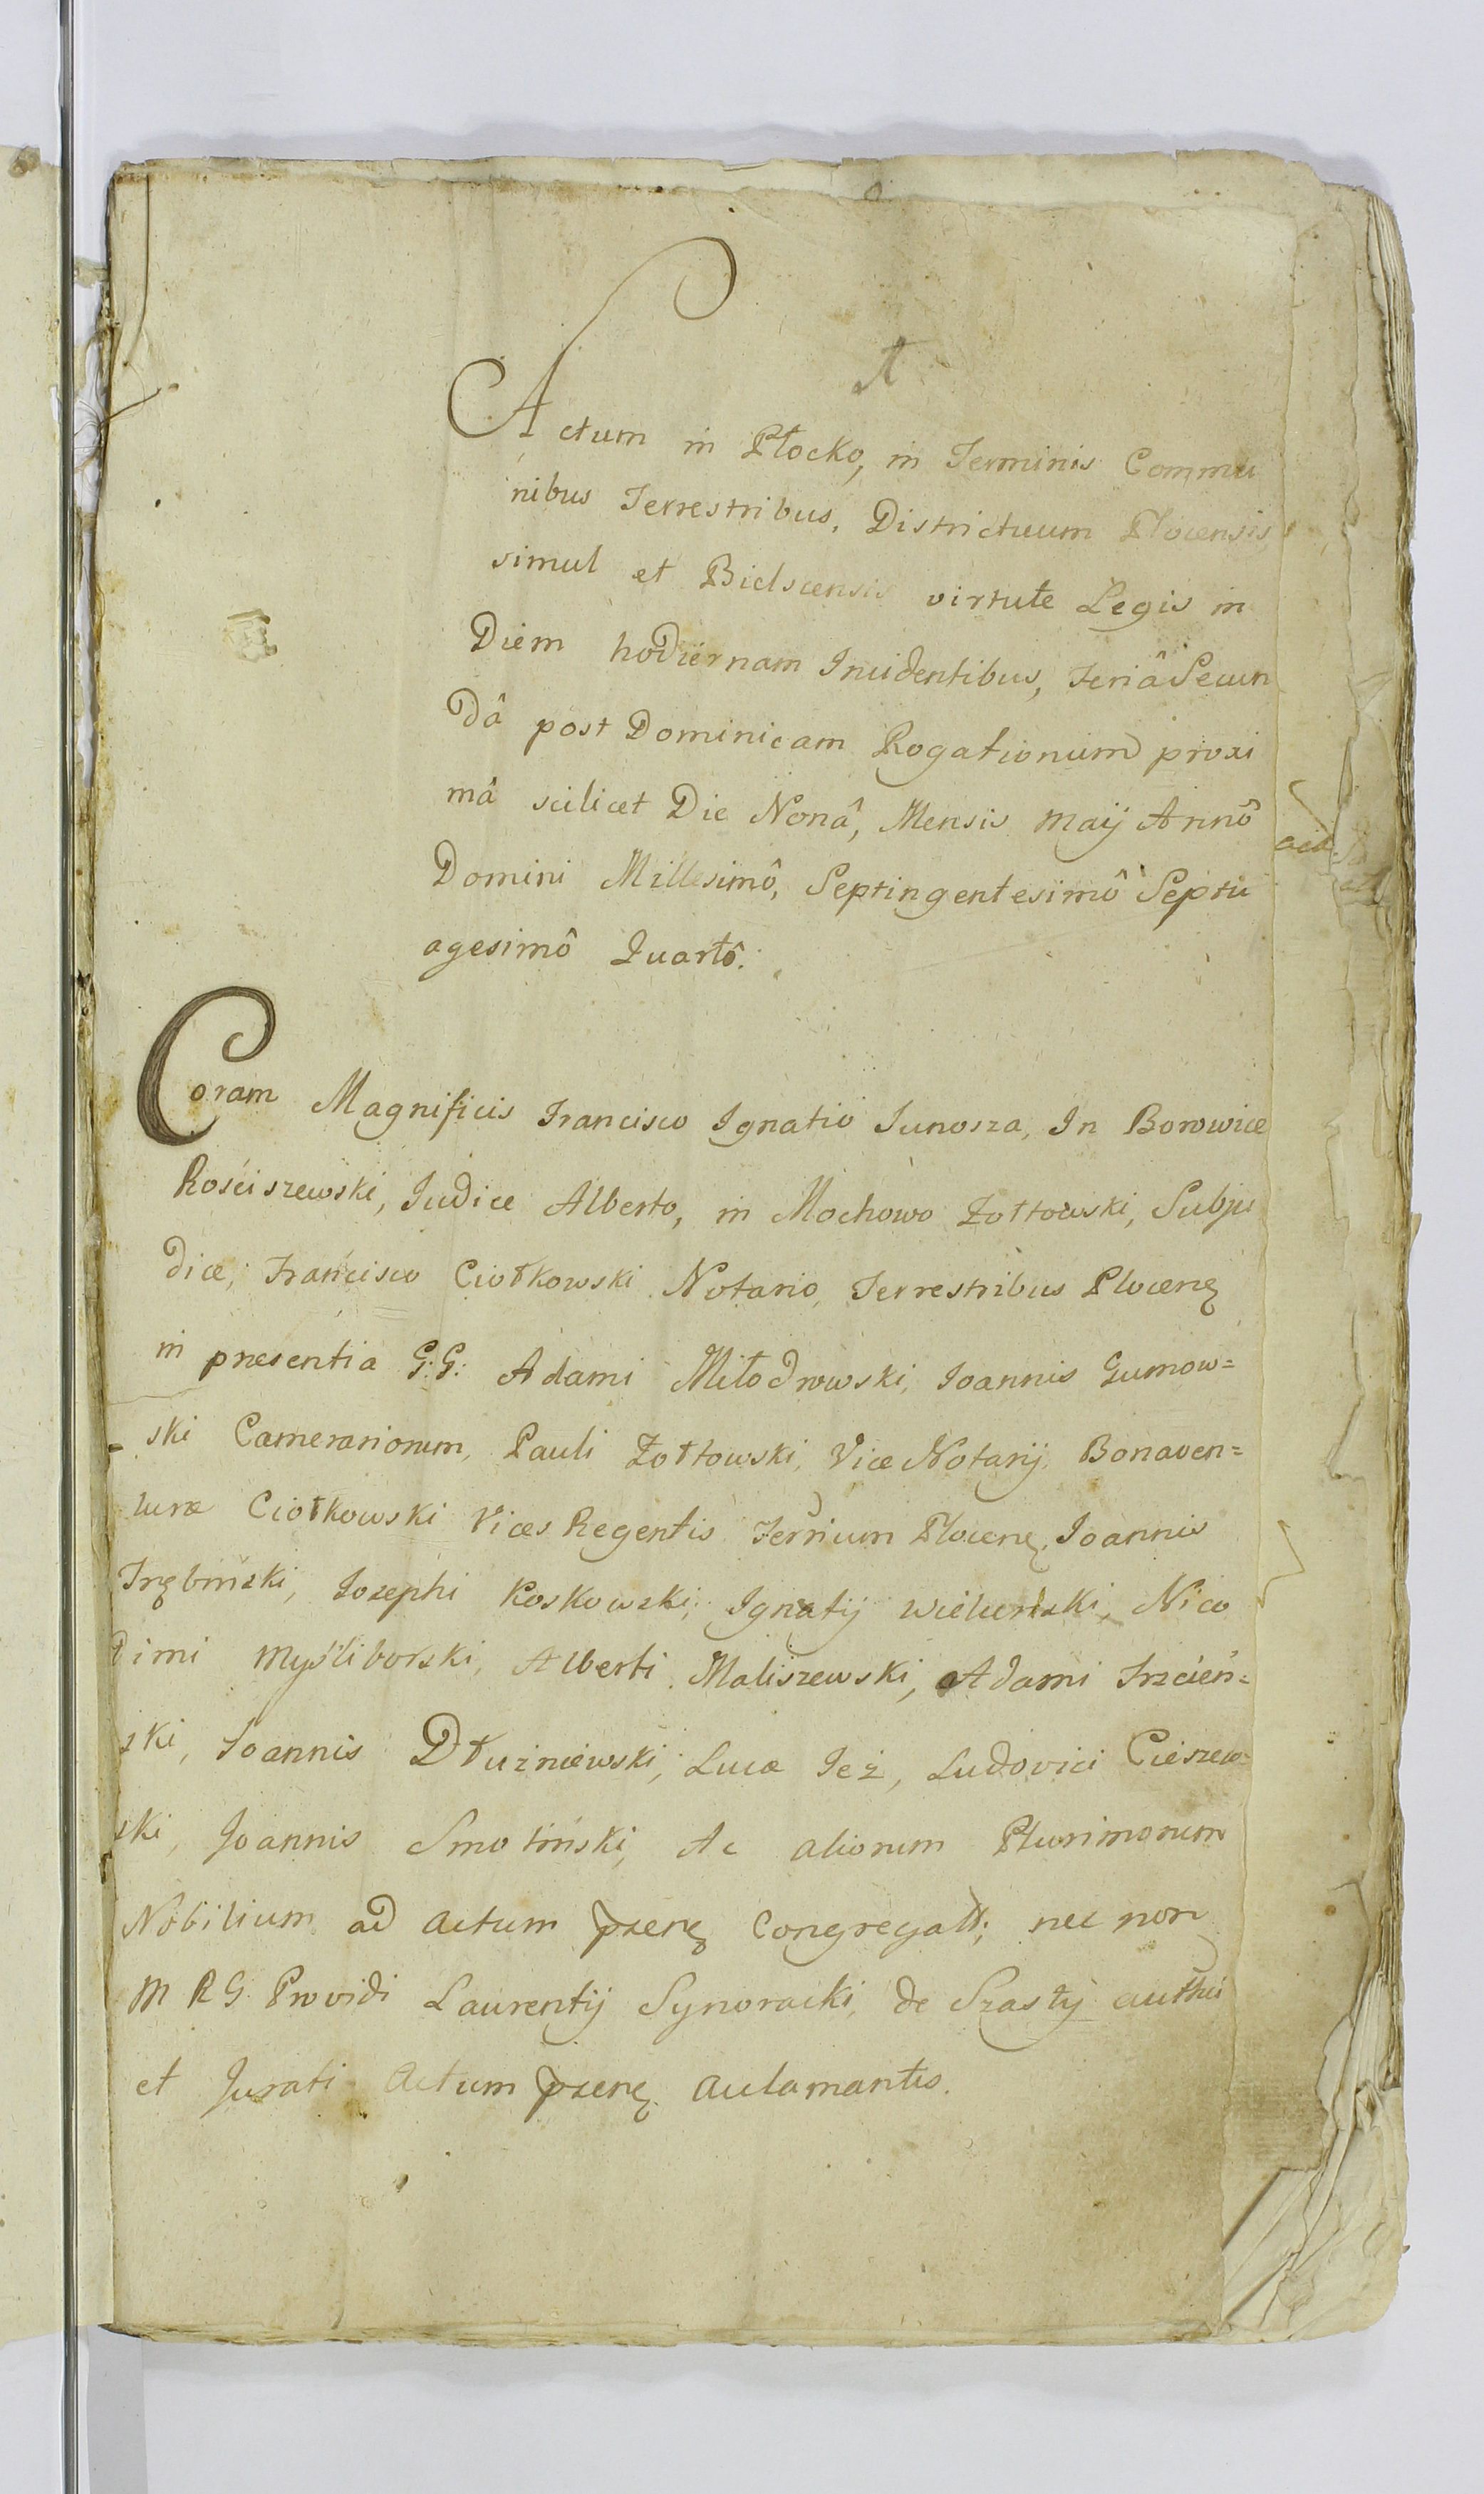 A
Actum in Płocko, in Terminis Commu
nibus Terrestribus, Districtuum Plocensis,
simul et Bielscensis virtute Legis in
Diem hodiernam Incidentibus, Feriâ Secun
dâ post Dominicam Rogationum proxi
mâ scilicet Die Nonâ, Mensis Maij Annô
Domini Millesimô, Septingentesimô Septu
agesimô Quartô.
Coram Magnificis Francisco Ignatio Junosza, In Borowice
Rościszewski, Judice Alberto, in Mochowo Zołtowski, Subju
dice, Francisco Ciołkowski Notario, Terrestribus Plocenę
in presentia G: G: Adami Miłodrowski, Joannis Gumow=
ski Camerariorum, Pauli Zołtowski, Vice Notarij, Bonaven=
turæ Ciołkowski Vices Regentis Terrium Plocenę, Joannis
Trębiński, Josephi Koskowski, Ignatij Wieluński, Nico
dimi Myśliborski, Alberti Maliszewski, Adami Trzciń=
ski, Joannis Dłużniewski, Lucæ Jeż, Ludovici Cieszew=
ski, Joannis Smoliński, Ac aliorum Plurimorum
Nobilium ad actum pzenę Congregatt; nec non
M R G Providi Laurentij Synoracki, de Szasty authci
et Jurati Actum pzenę aclamantis.